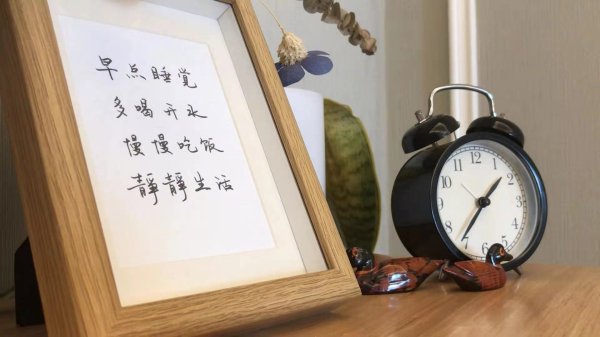 早点睡觉
多喝开水
慢慢吃饭
靜靜生活
12
1
2
3
5
6
7
8
9
10
11